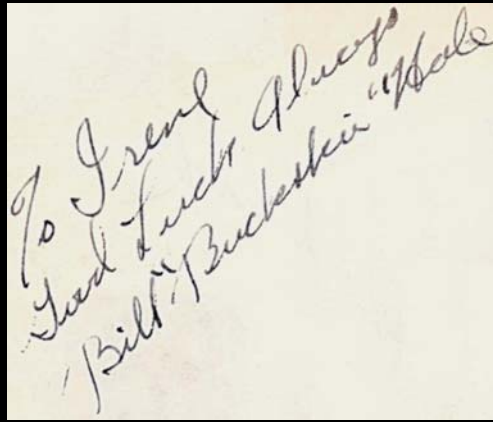 To Irene
Good Luck Always
"Bill" "Buckskin" Hale